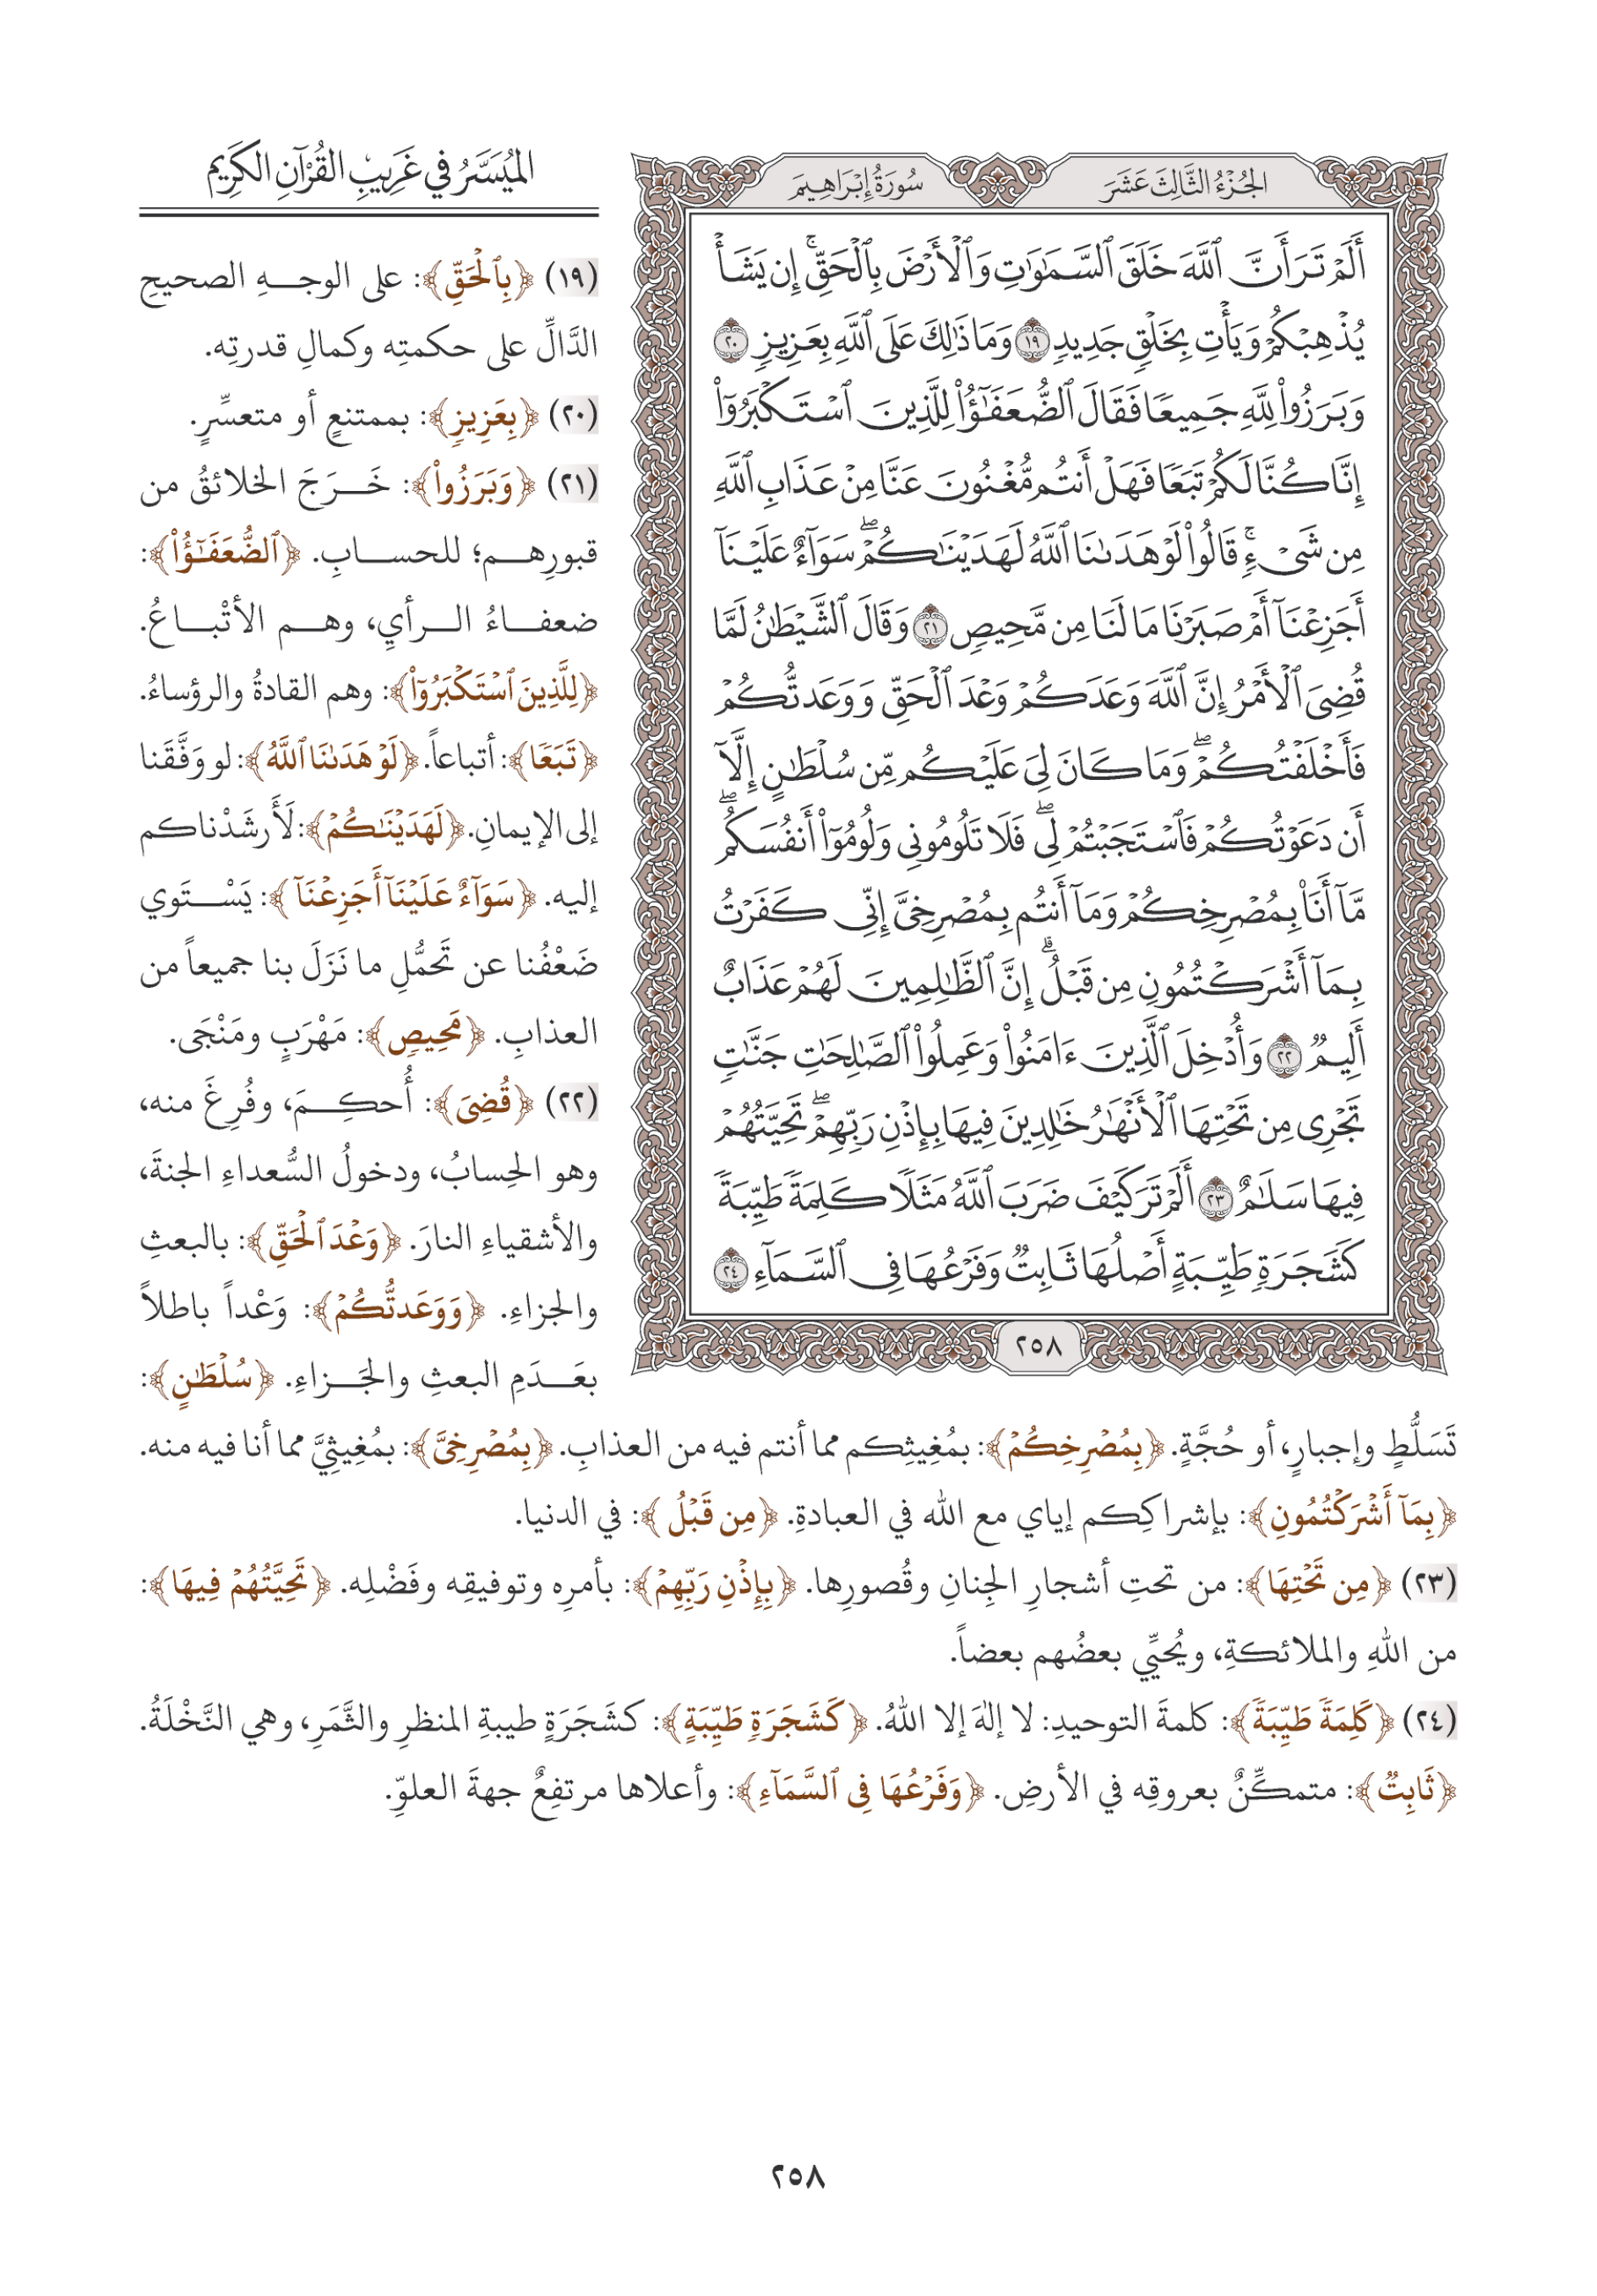 الجُزْءُ الثَّالِثَ عَشَرَ
سُورَةُ إِبْرَاهِيمَ
أَلَمْ تَرَ أَنَّ ٱللَّهَ خَلَقَ ٱلسَّمَٰوَٰتِ وَٱلْأَرْضَ بِٱلْحَقِّۚ إِن يَشَأْ
يُذْهِبْكُمْ وَيَأْتِ بِخَلْقٍ جَدِيدٍ ۝١٩ وَمَا ذَٰلِكَ عَلَى ٱللَّهِ بِعَزِيزٍ ۝٢٠
وَبَرَزُوا۟ لِلَّهِ جَمِيعًا فَقَالَ ٱلضُّعَفَٰٓؤُا۟ لِلَّذِينَ ٱسْتَكْبَرُوٓا۟
إِنَّا كُنَّا لَكُمْ تَبَعًا فَهَلْ أَنتُم مُّغْنُونَ عَنَّا مِنْ عَذَابِ ٱللَّهِ
مِن شَىْءٍۚ قَالُوا۟ لَوْ هَدَىٰنَا ٱللَّهُ لَهَدَيْنَٰكُمْۖ سَوَآءٌ عَلَيْنَآ
أَجَزِعْنَآ أَمْ صَبَرْنَا مَا لَنَا مِن مَّحِيصٍ ۝٢١ وَقَالَ ٱلشَّيْطَٰنُ لَمَّا
قُضِىَ ٱلْأَمْرُ إِنَّ ٱللَّهَ وَعَدَكُمْ وَعْدَ ٱلْحَقِّ وَوَعَدتُّكُمْ
فَأَخْلَفْتُكُمْۖ وَمَا كَانَ لِىَ عَلَيْكُم مِّن سُلْطَٰنٍ إِلَّآ
أَن دَعَوْتُكُمْ فَٱسْتَجَبْتُمْ لِىۖ فَلَا تَلُومُونِى وَلُومُوٓا۟ أَنفُسَكُمۖ
مَّآ أَنَا۠ بِمُصْرِخِكُمْ وَمَآ أَنتُم بِمُصْرِخِىَّ إِنِّى كَفَرْتُ
بِمَآ أَشْرَكْتُمُونِ مِن قَبْلُۗ إِنَّ ٱلظَّٰلِمِينَ لَهُمْ عَذَابٌ
أَلِيمٌ ۝٢٢ وَأُدْخِلَ ٱلَّذِينَ ءَامَنُوا۟ وَعَمِلُوا۟ ٱلصَّٰلِحَٰتِ جَنَّٰتٍ
تَجْرِى مِن تَحْتِهَا ٱلْأَنْهَٰرُ خَٰلِدِينَ فِيهَا بِإِذْنِ رَبِّهِمْۖ تَحِيَّتُهُمْ
فِيهَا سَلَٰمٌ ۝٢٣ أَلَمْ تَرَ كَيْفَ ضَرَبَ ٱللَّهُ مَثَلًا كَلِمَةً طَيِّبَةً
كَشَجَرَةٍ طَيِّبَةٍ أَصْلُهَا ثَابِتٌ وَفَرْعُهَا فِى ٱلسَّمَآءِ ۝٢٤
٢٥٨
المُيَسَّرُ في غَرِيبِ القُرْآنِ الكَرِيمِ
(١٩) ﴿بِٱلْحَقِّ﴾: على الوجهِ الصحيحِ
الدَّالِّ على حكمتِه وكمالِ قدرتِه.
(٢٠) ﴿بِعَزِيزٍ﴾: بممتنعٍ أو متعسِّرٍ.
(٢١) ﴿وَبَرَزُوا۟﴾: خَرَجَ الخلائقُ من
قبورِهم؛ للحسابِ. ﴿ٱلضُّعَفَٰٓؤُا۟﴾:
ضعفاءُ الرأيِ، وهم الأتْباعُ.
﴿لِلَّذِينَ ٱسْتَكْبَرُوٓا۟﴾: وهم القادةُ والرؤساءُ.
﴿تَبَعًا﴾: أتباعاً. ﴿لَوْ هَدَىٰنَا ٱللَّهُ﴾: لو وَفَّقَنا
إلى الإيمانِ. ﴿لَهَدَيْنَٰكُمْ﴾: لَأَرشَدْناكم
إليه. ﴿سَوَآءٌ عَلَيْنَآ أَجَزِعْنَآ﴾: يَسْتَوي
ضَعْفُنا عن تَحمُّلِ ما نَزَلَ بنا جميعاً من
العذابِ. ﴿مَّحِيصٍ﴾: مَهْرَبٍ ومَنْجَى.
(٢٢) ﴿قُضِىَ﴾: أُحكِمَ، وفُرِغَ منه،
وهو الحِسابُ، ودخولُ السُّعداءِ الجنةَ،
والأشقياءِ النارَ. ﴿وَعْدَ ٱلْحَقِّ﴾: بالبعثِ
والجزاءِ. ﴿وَوَعَدتُّكُمْ﴾: وَعْداً باطلاً
بعَدَمِ البعثِ والجَزاءِ. ﴿سُلْطَٰنٍ﴾:
تَسَلُّطٍ وإجبارٍ، أو حُجَّةٍ. ﴿بِمُصْرِخِكُمْ﴾: بمُغِيثِكم مما أنتم فيه من العذابِ. ﴿بِمُصْرِخِىَّ﴾: بمُغِيثِيَّ مما أنا فيه منه.
﴿بِمَآ أَشْرَكْتُمُونِ﴾: بإشراكِكم إياي مع الله في العبادةِ. ﴿مِن قَبْلُ﴾: في الدنيا.
(٢٣) ﴿مِن تَحْتِهَا﴾: من تحتِ أشجارِ الجِنانِ وقُصورِها. ﴿بِإِذْنِ رَبِّهِمْ﴾: بأمرِه وتوفيقِه وفَضْلِه. ﴿تَحِيَّتُهُمْ فِيهَا﴾:
من اللهِ والملائكةِ، ويُحيِّي بعضُهم بعضاً.
(٢٤) ﴿كَلِمَةً طَيِّبَةً﴾: كلمةَ التوحيدِ: لا إلهَ إلا اللهُ. ﴿كَشَجَرَةٍ طَيِّبَةٍ﴾: كشَجَرَةٍ طيبةِ المنظرِ والثَّمَرِ، وهي النَّخْلَةُ.
﴿ثَابِتٌ﴾: متمكِّنٌ بعروقِه في الأرضِ. ﴿وَفَرْعُهَا فِى ٱلسَّمَآءِ﴾: وأعلاها مرتفِعٌ جهةَ العلوِّ.
٢٥٨